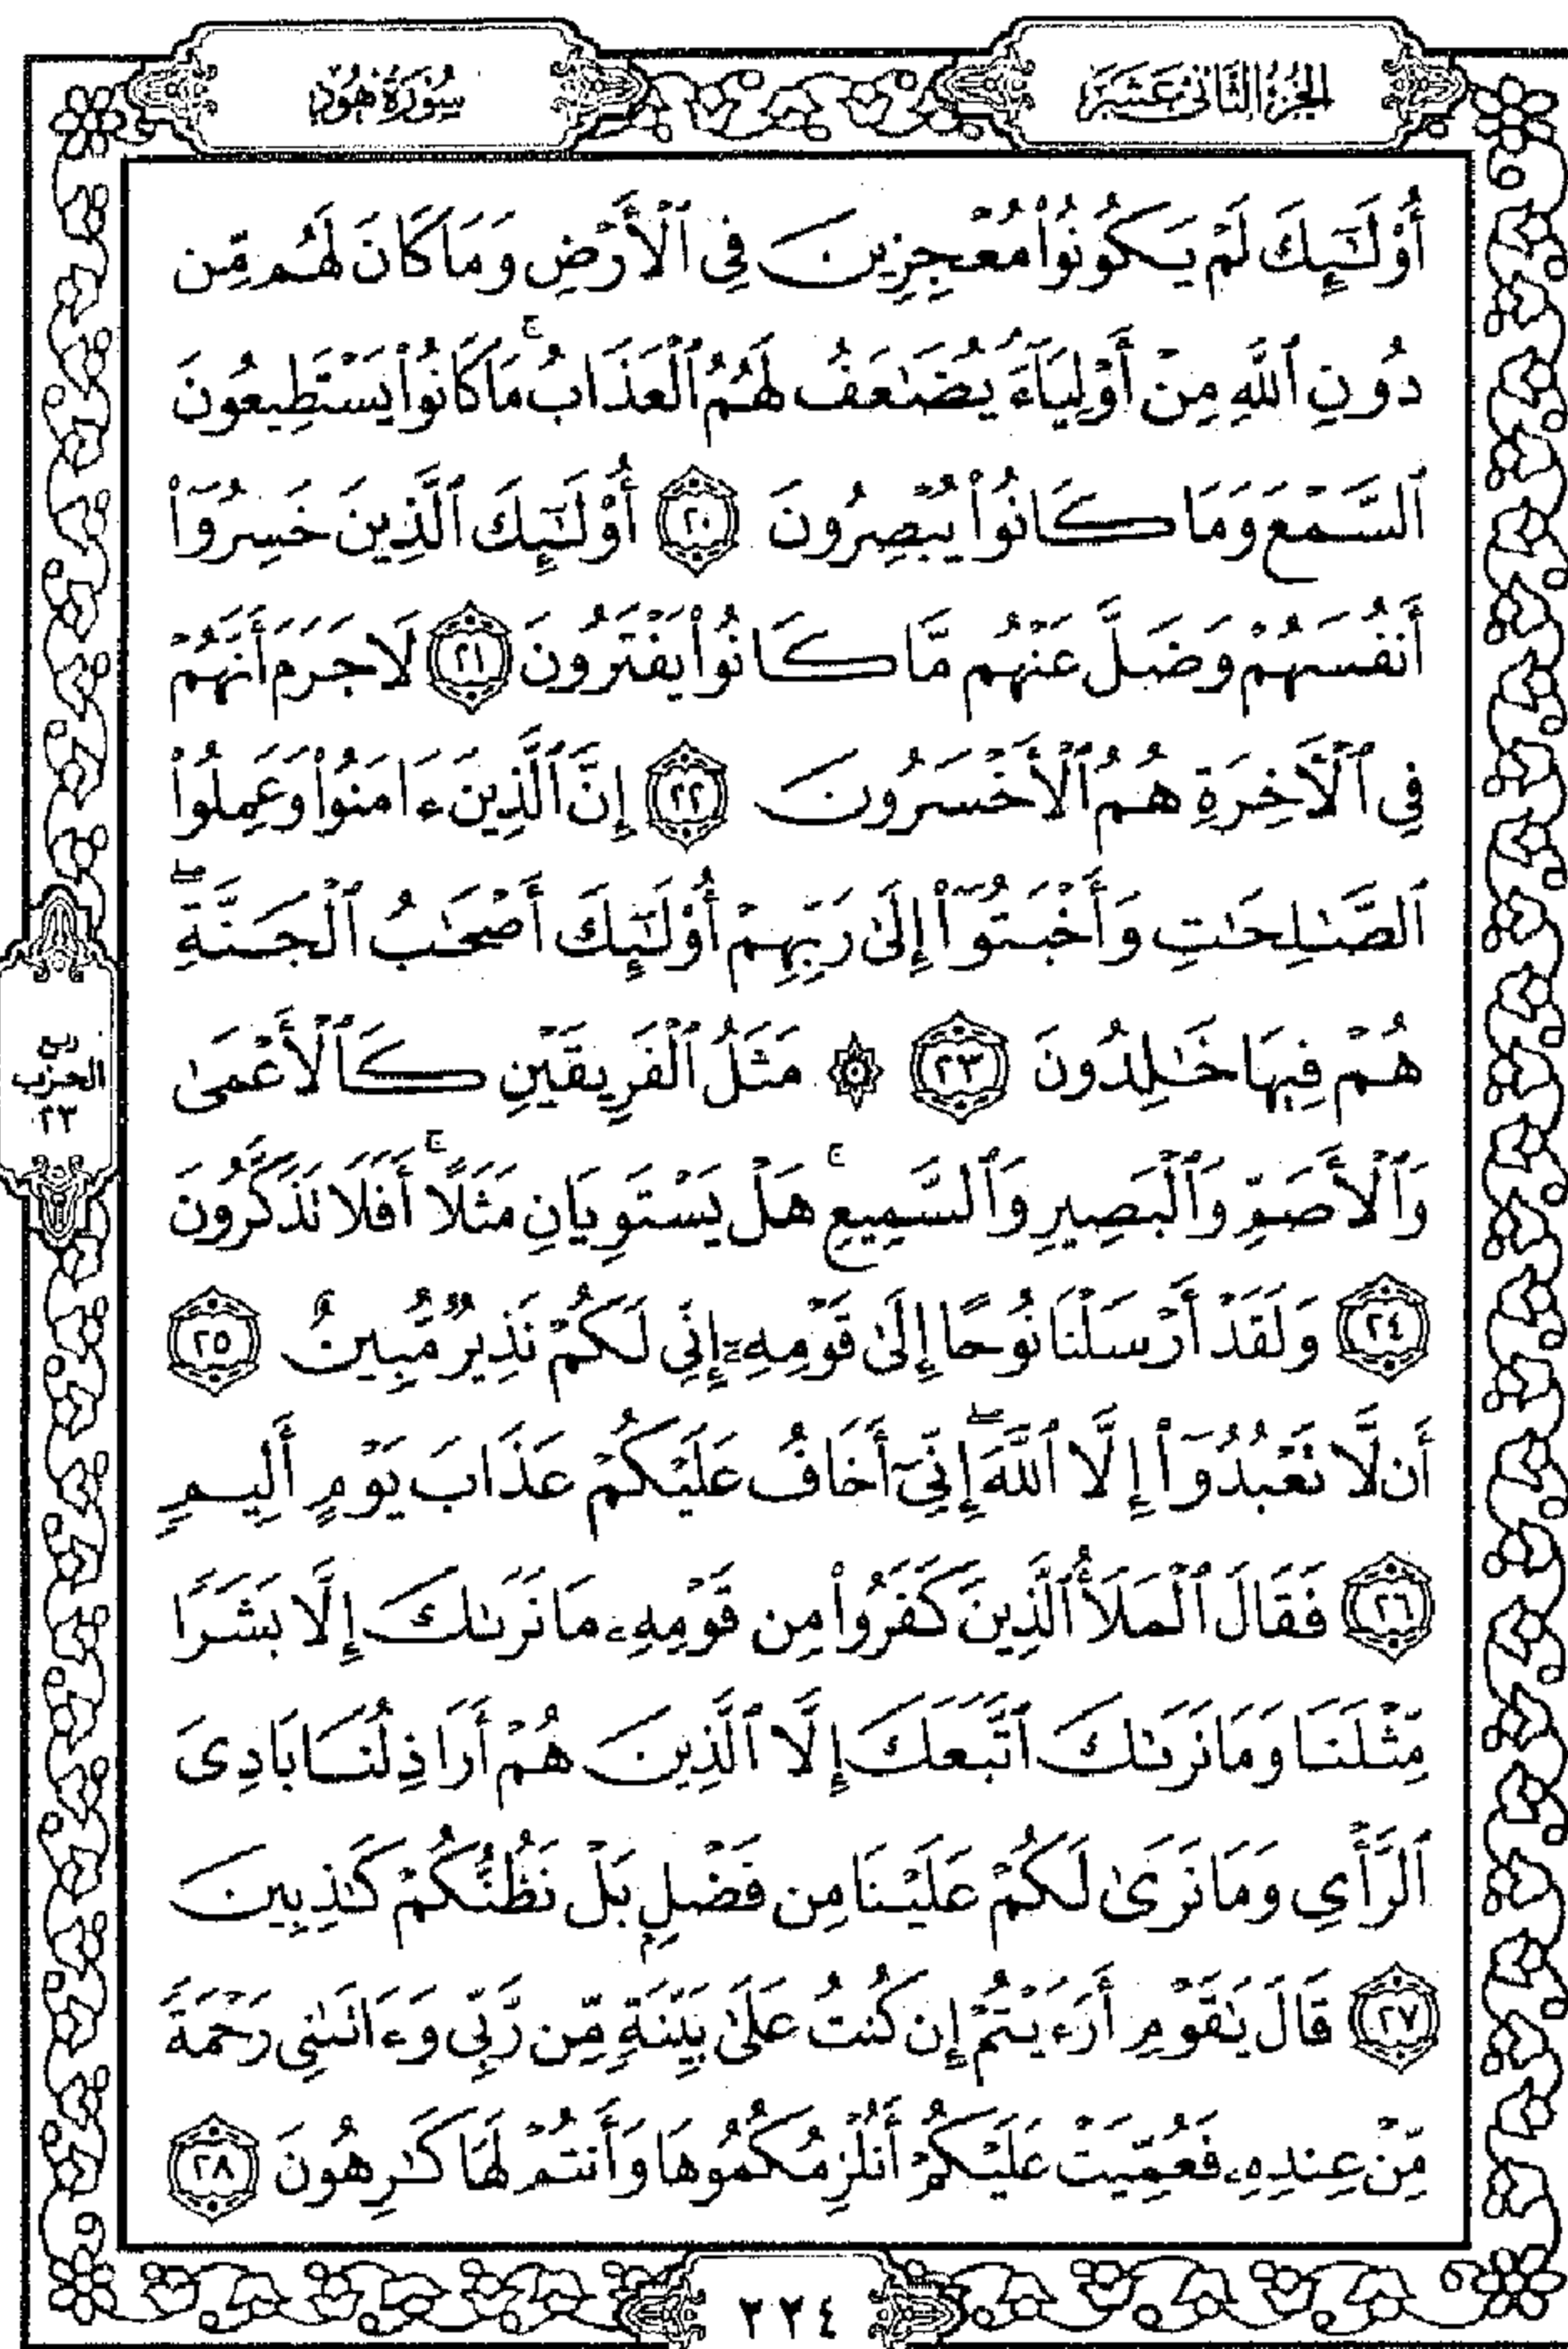 الجزء الثاني عشر
سُورَةُ هُودٍ
أُوْلَٰٓئِكَ لَمْ يَكُونُواْ مُعْجِزِينَ فِى ٱلْأَرْضِ وَمَا كَانَ لَهُم مِّن
دُونِ ٱللَّهِ مِنْ أَوْلِيَآءَ ۘ يُضَٰعَفُ لَهُمُ ٱلْعَذَابُ ۚ مَا كَانُواْ يَسْتَطِيعُونَ
ٱلسَّمْعَ وَمَا كَانُواْ يُبْصِرُونَ ٢٠ أُوْلَٰٓئِكَ ٱلَّذِينَ خَسِرُوٓاْ
أَنفُسَهُمْ وَضَلَّ عَنْهُم مَّا كَانُواْ يَفْتَرُونَ ٢١ لَا جَرَمَ أَنَّهُمْ
فِى ٱلْأَخِرَةِ هُمُ ٱلْأَخْسَرُونَ ٢٢ إِنَّ ٱلَّذِينَ ءَامَنُواْ وَعَمِلُواْ
ٱلصَّٰلِحَٰتِ وَأَخْبَتُوٓاْ إِلَىٰ رَبِّهِمْ أُوْلَٰٓئِكَ أَصْحَٰبُ ٱلْجَنَّةِ ۖ
هُمْ فِيهَا خَٰلِدُونَ ٢٣ ۞ مَثَلُ ٱلْفَرِيقَيْنِ كَٱلْأَعْمَىٰ
وَٱلْأَصَمِّ وَٱلْبَصِيرِ وَٱلسَّمِيعِ ۚ هَلْ يَسْتَوِيَانِ مَثَلًا ۚ أَفَلَا تَذَكَّرُونَ
٢٤ وَلَقَدْ أَرْسَلْنَا نُوحًا إِلَىٰ قَوْمِهِۦٓ إِنِّى لَكُمْ نَذِيرٌ مُّبِينٌ ٢٥
أَن لَّا تَعْبُدُوٓاْ إِلَّا ٱللَّهَ ۖ إِنِّىٓ أَخَافُ عَلَيْكُمْ عَذَابَ يَوْمٍ أَلِيمٍ
٢٦ فَقَالَ ٱلْمَلَأُ ٱلَّذِينَ كَفَرُواْ مِن قَوْمِهِۦ مَا نَرَىٰكَ إِلَّا بَشَرًا
مِّثْلَنَا وَمَا نَرَىٰكَ ٱتَّبَعَكَ إِلَّا ٱلَّذِينَ هُمْ أَرَاذِلُنَا بَادِىَ
ٱلرَّأْىِ وَمَا نَرَىٰ لَكُمْ عَلَيْنَا مِن فَضْلٍۭ بَلْ نَظُنُّكُمْ كَٰذِبِينَ
٢٧ قَالَ يَٰقَوْمِ أَرَءَيْتُمْ إِن كُنتُ عَلَىٰ بَيِّنَةٍ مِّن رَّبِّى وَءَاتَىٰنِى رَحْمَةً
مِّنْ عِندِهِۦ فَعُمِّيَتْ عَلَيْكُمْ أَنُلْزِمُكُمُوهَا وَأَنتُمْ لَهَا كَٰرِهُونَ ٢٨
ربع
الحزب
٢٣
٢٢٤